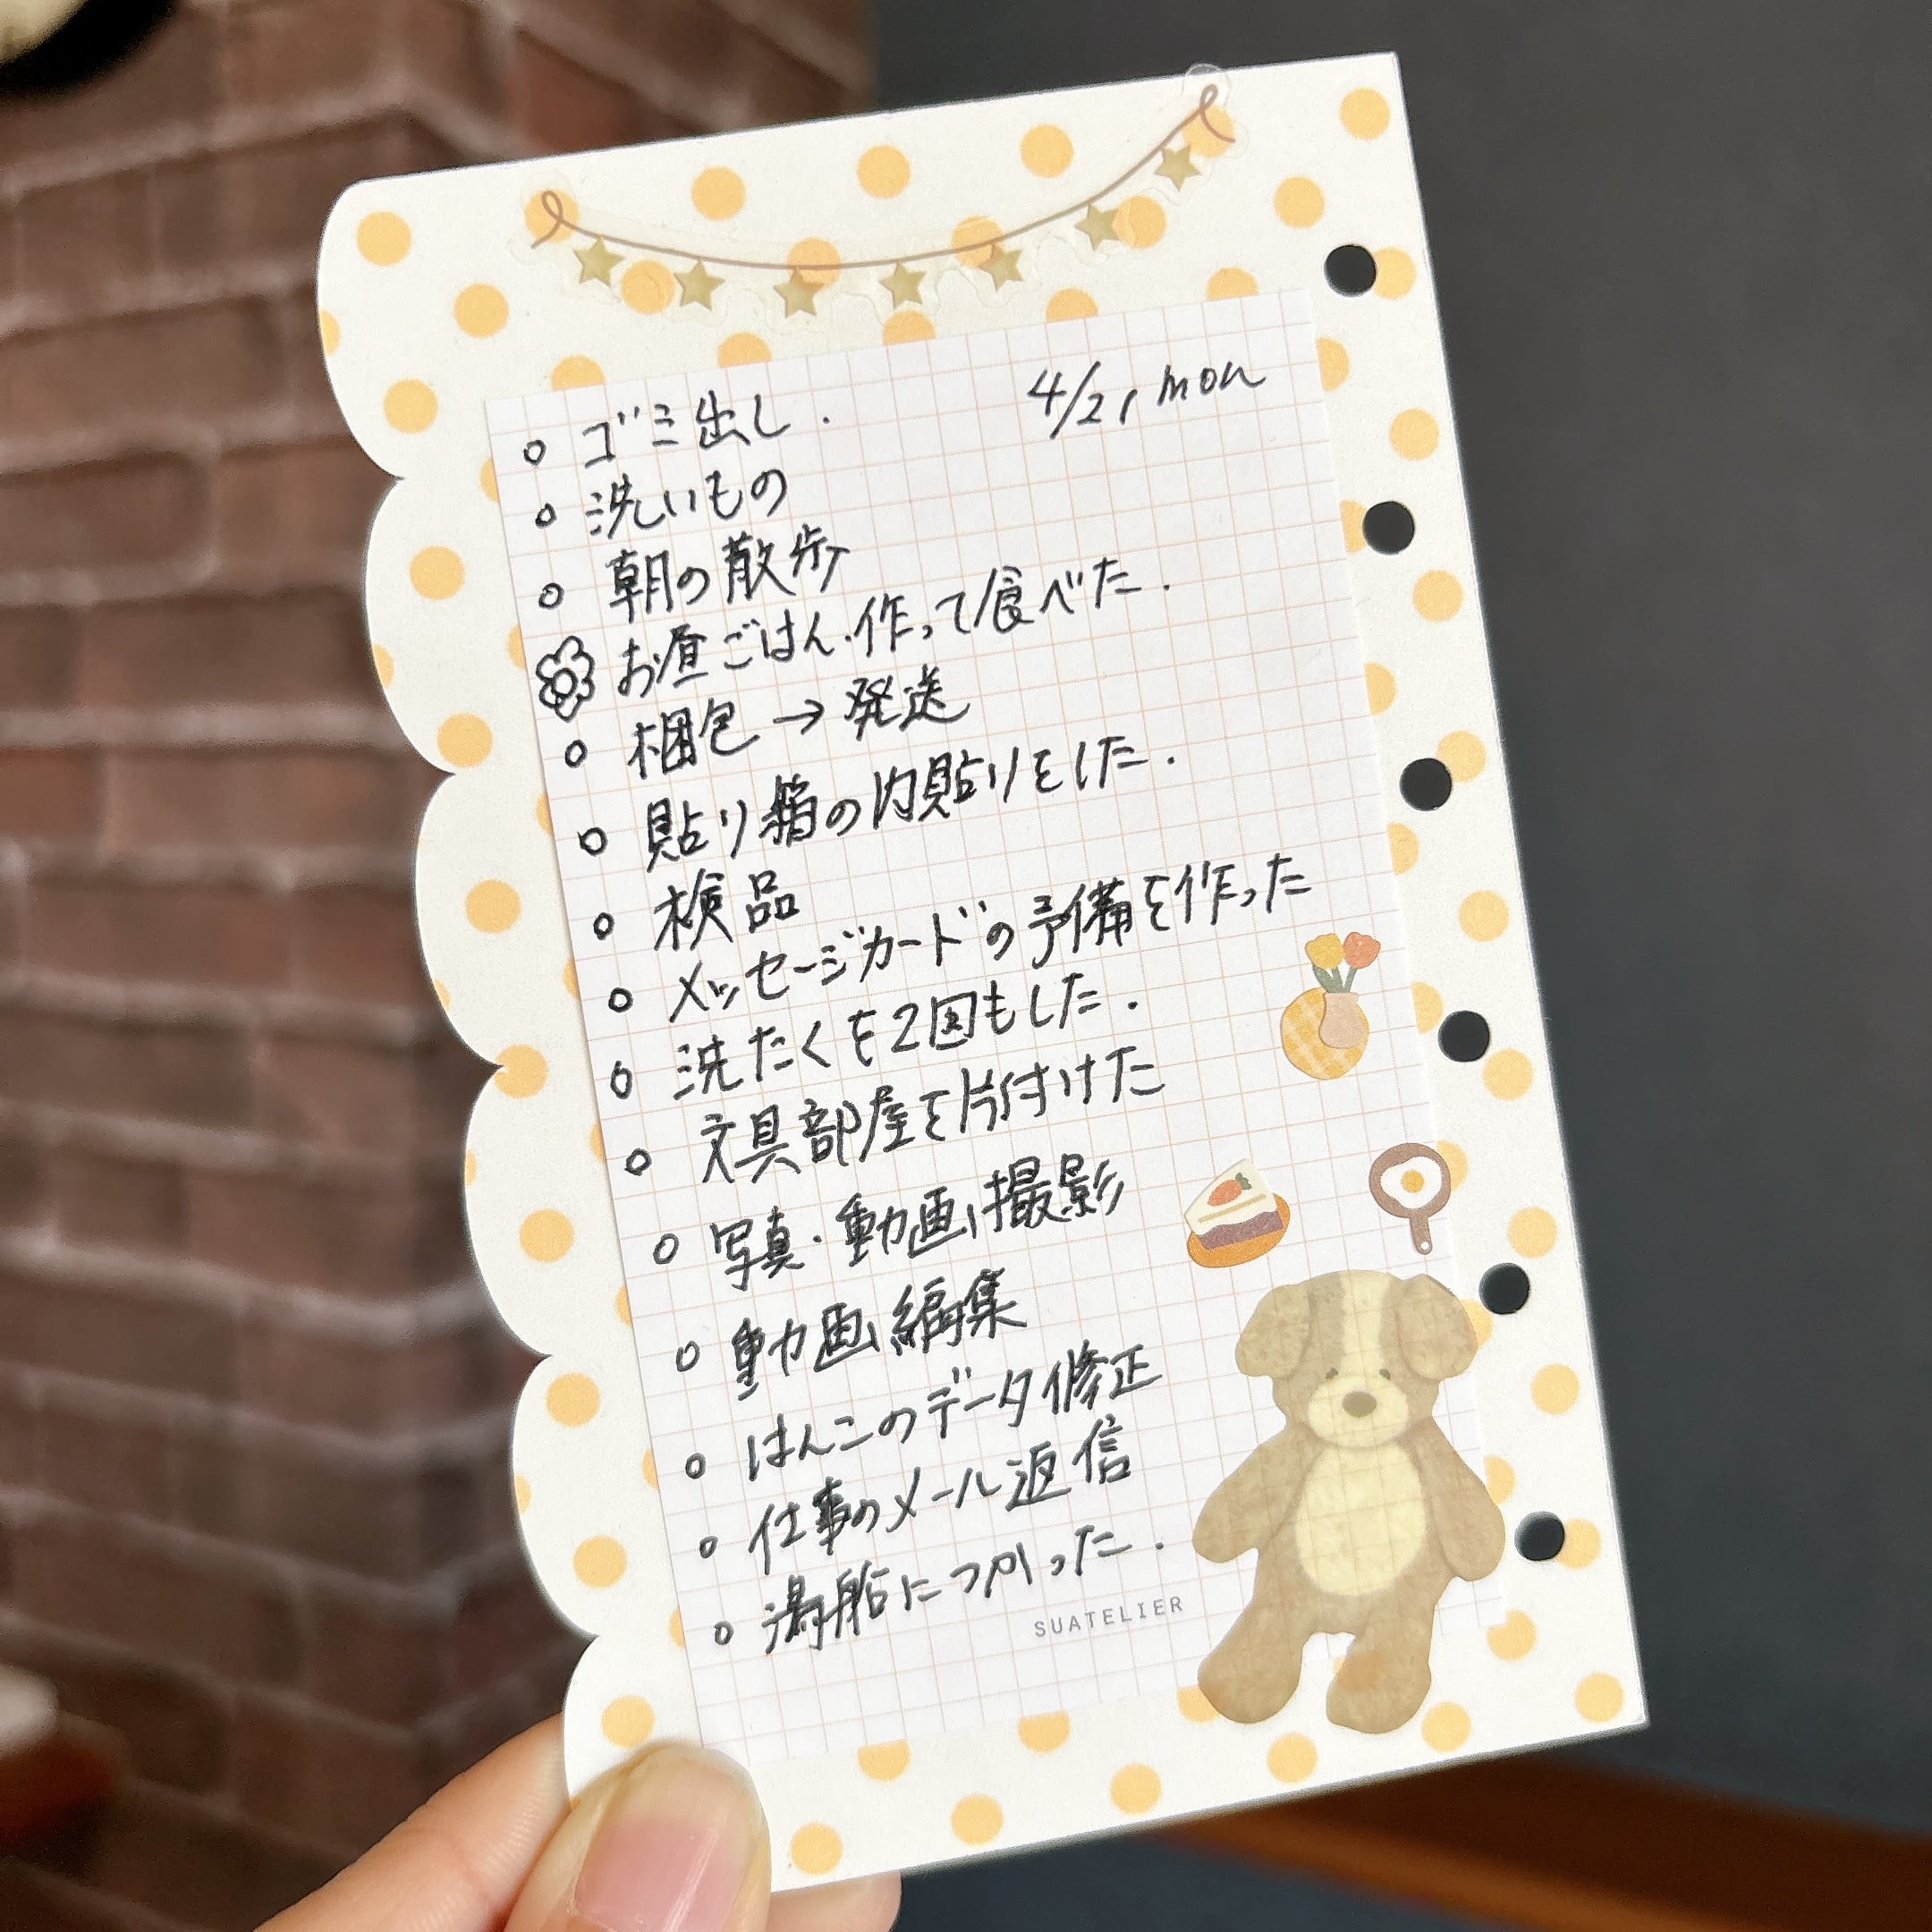 4/21 mon
○ ゴミ出し.
○ 洗いもの
○ 朝の散歩
お昼ごはん.作って食べた.
○ 梱包 → 発送
○ 貼り箱の内貼りをした.
○ 検品
○ メッセージカードの予備を作った
○ 洗たくを2回もした.
○ 文具部屋を片付けた
○ 写真・動画撮影
○ 動画編集
○ はんこのデータ修正
○ 仕事のメール返信
○ 湯船につかった.
SUATELIER